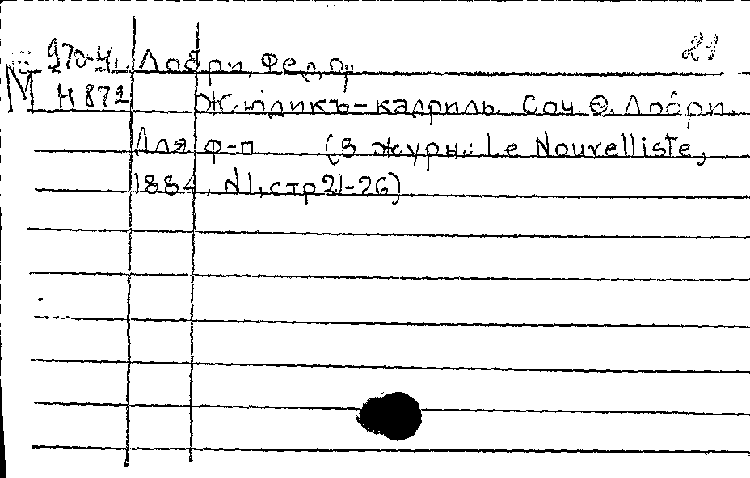 21
970-41 Лобри, Федор
М Н 872 Жюдикъ-кадриль. Соч. Ѳ. Лобри.
Для ф-п (В журн.: Le Nouvelliste,
1884, N1, стр 21-26)